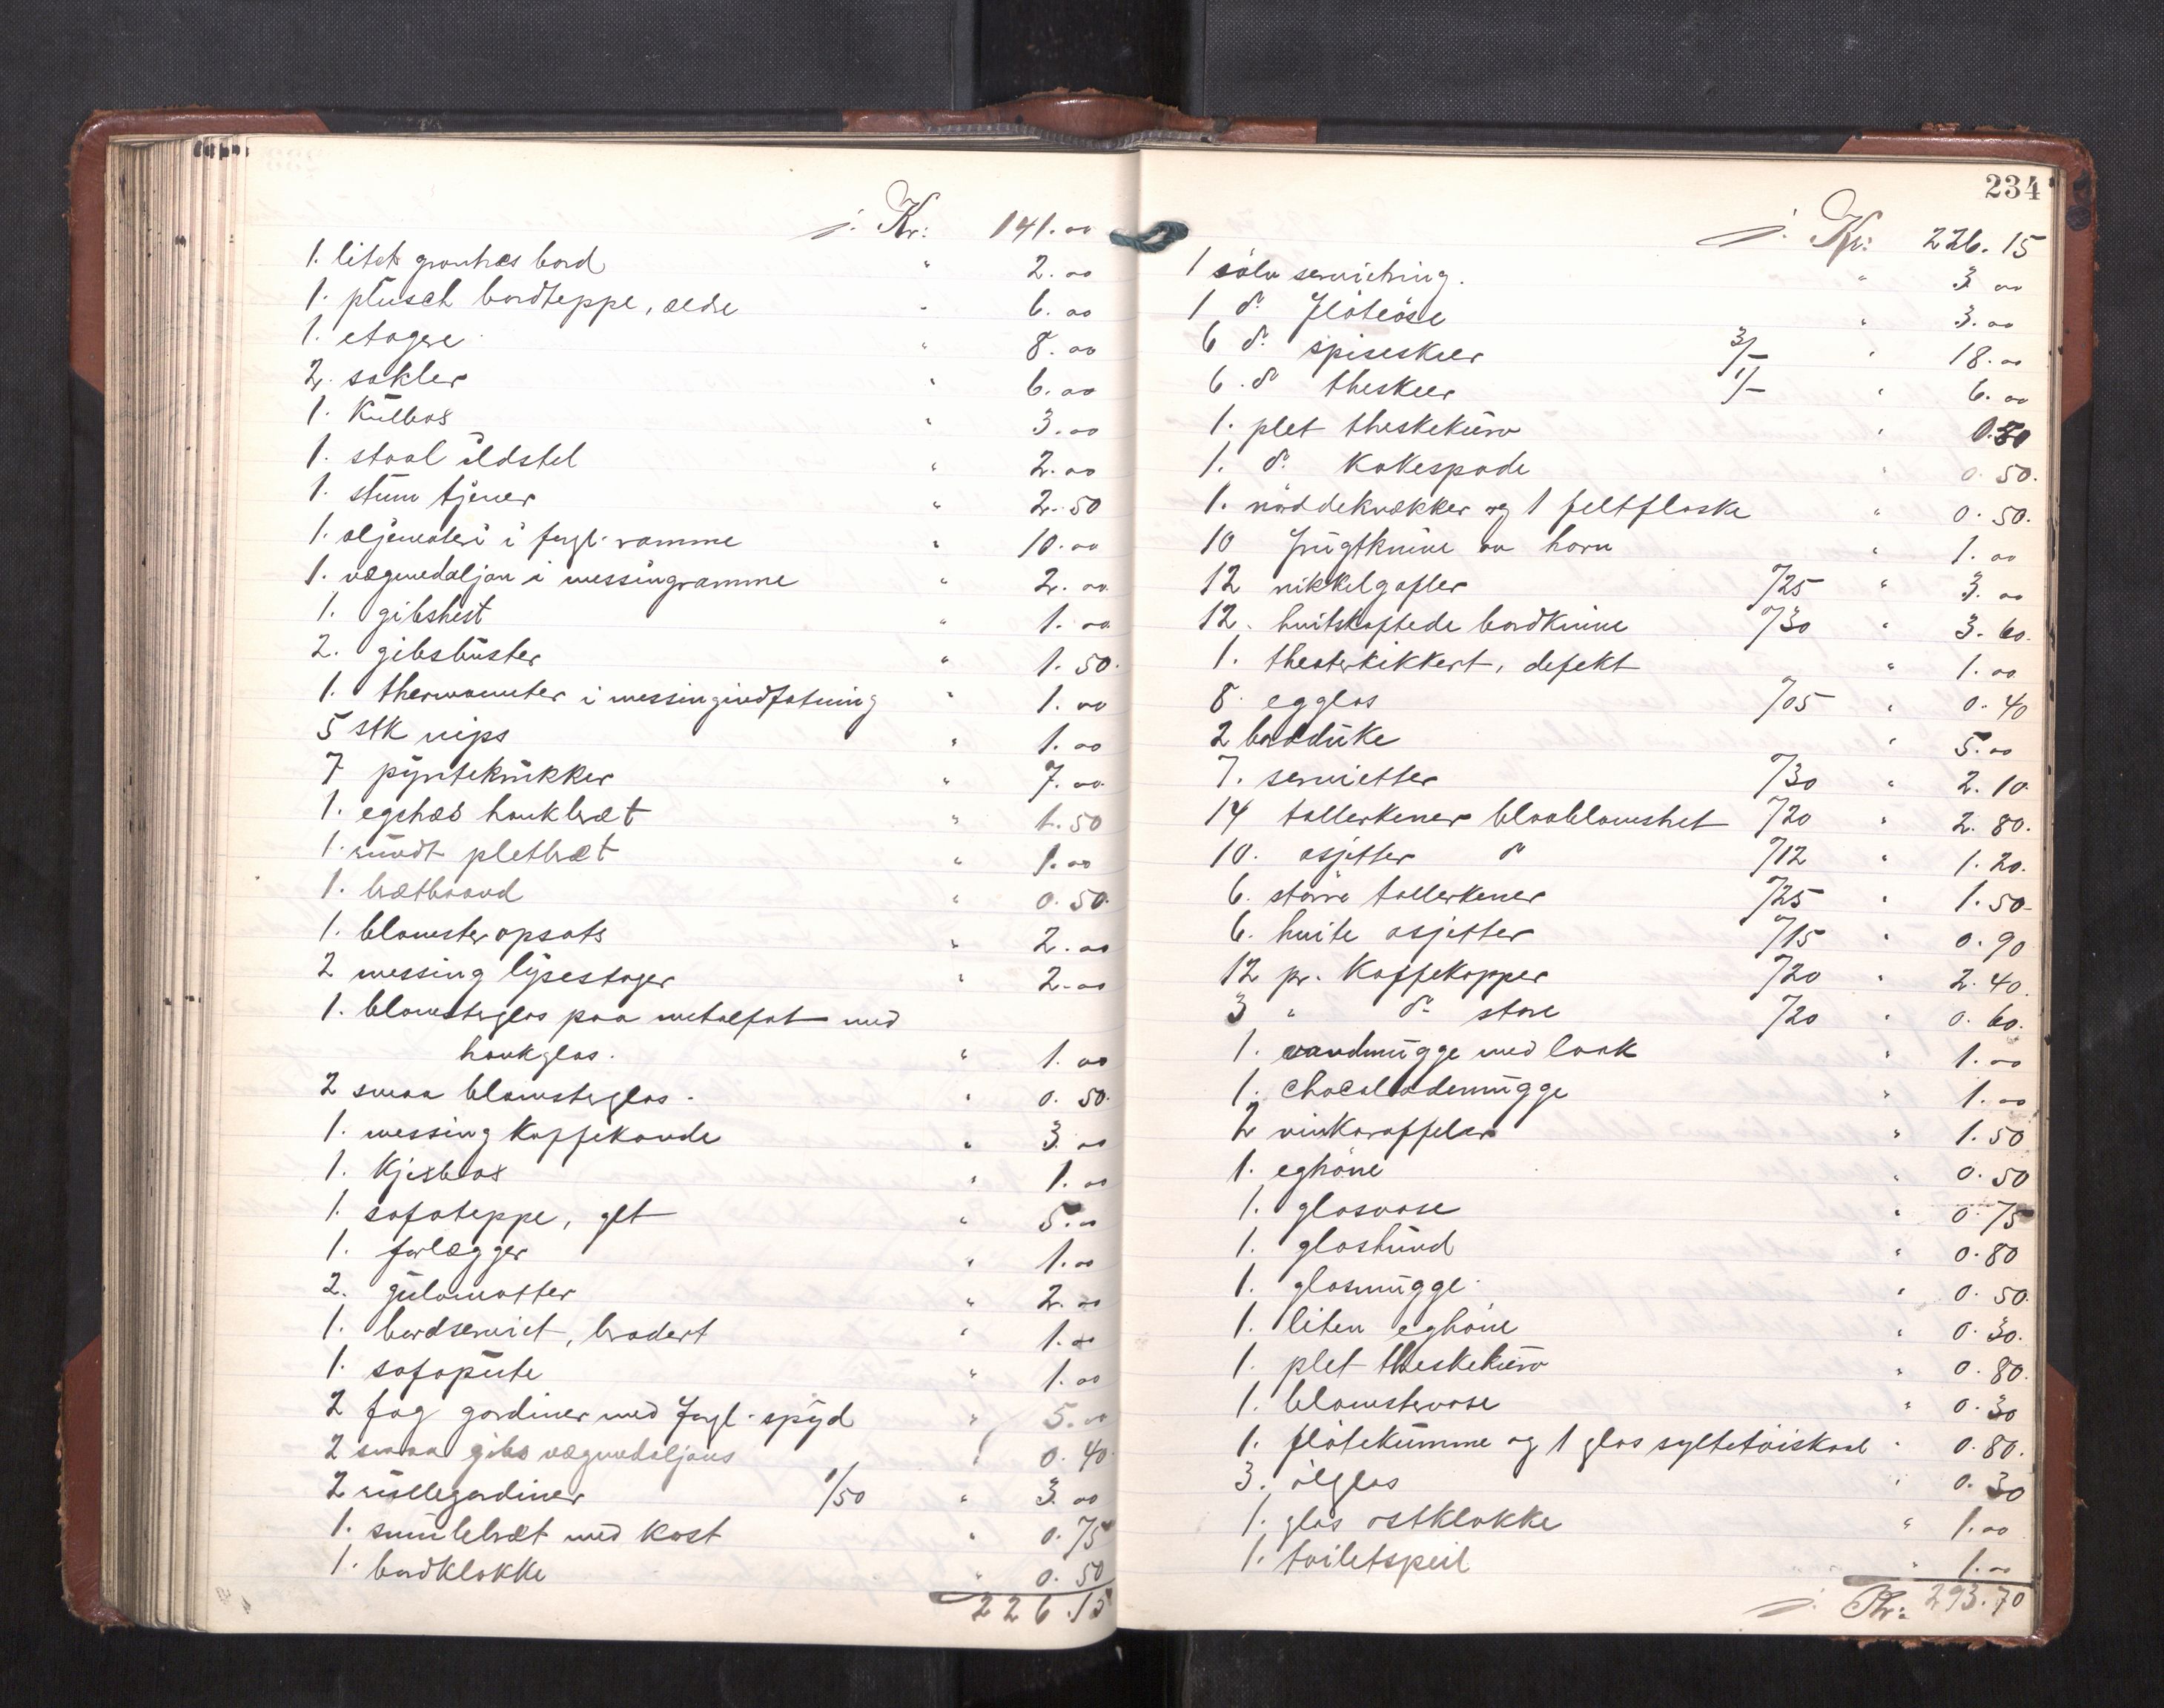 j. Kr: 141.00
1. litet grantræs bord " 2.00
1. plusch bordteppe, ældre " 6.00
1. etagere " 8.00
2. sokler " 6.00
1. Kulbox " 3.00
1. staal ildstel " 2.00
1. stum tjener " 2.50
1. oljemaleri i forgl. ramme " 10.00
1. vægmedaljon i messingramme " 2.00
1. gibshest " 1.00
2. gibsbuster " 1.50.
1. thermometer i messingindfatning " 1.00
5 stk nips " 1.00
7 pyntekrukker " 7.00
1. egetræs hankbræt " 1.50
1. rundt pletbræt " 1.00
1. brætbaand " 0.50.
1. blomsteropsats " 2.00
2 messing lysestager " 2.00
1. blomsterglas paa metalfat med
hankglas. " 1.00
2 smaa blomsterglas. " 0.50.
1. messing Kaffekande " 3.00
1. Kjeksbox " 1.00
1. sofateppe, glt " 5.00
1. forlægger " 1.00
2. gulvmatter " 2.00
1. bordserviet, brodert " 1.00
1. sofapute " 1.00
2 fag gardiner med forgl. spyd " 5.00
2 smaa gibs vægmedaljons " 0.40.
2 rullegardiner 1/50 " 3.00
1. smulebræt med Kost " 0.75
1. bordklokke " 0.50
226.15
234
j. Kr: 226.15
1 sølv servietring. " 3.00
1 do. fløteøse " 3.00
6 do. spiseskeer 3/- " 18.00
6. do. theskeer 1/- " 6.00
1. plet theskekurv " 0.80
1. do. Kakespade " 0.50.
1. nøddeknækker og 1 feltflaske " 0.50.
10 frugtknive av horn " 1.00
12 nikkelgafler "/25 " 3.00
12. hvitskaftede bordknive "/30 " 3.60.
1. theaterkikkert, defekt " 1.00
8. egglas "/05 " 0.40
2 bordduke " 5.00
7. servietter "/30 " 2.10
14 tallerkener blaablomstret "/20 " 2.80.
10. asjetter do "/12 " 1.20.
6. større tallerkener "/25 " 1.50
6. hvite asjetter "/15 " 0.90
12 pr. Kaffekopper "/20 " 2.40.
3 " do. store "/20 " 0.60.
1. vandmugge med laak " 1.00
1. chocolademugge " 1.00
2 vinkaraffeler " 1.50
1. eghøne " 0.50
1. glasvase " 0.75
1. glashund " 0.80
1. glasmugge. " 0.50.
1. liten eghøne " 0.30.
1. plet theskekurv " 0.80.
1. blomstervase " 0.30
1. fløtekumme og 1 glas syltetøiskaal " 0.80.
3. ølglas " 0.30
1. glas ostklokke " 1.00
1. toiletspeil " 1.00
j. Kr: 293.70